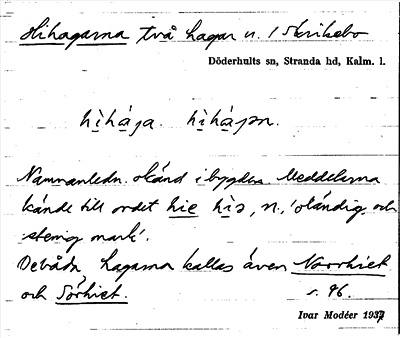 Hihagarna två hagar u. / Skrikebo
Döderhults sn, Stranda hd, Kalm. l.
hìhága. hìhágɔn.
Namnanledn. okänd i bygden. Meddelarna
kände till ordet hie hìə, n., 'oländig och
stenig mark'.
De båda hagarna kallas även Norrhiet
och Sörhiet. s. 96.
Ivar Modéer 1937